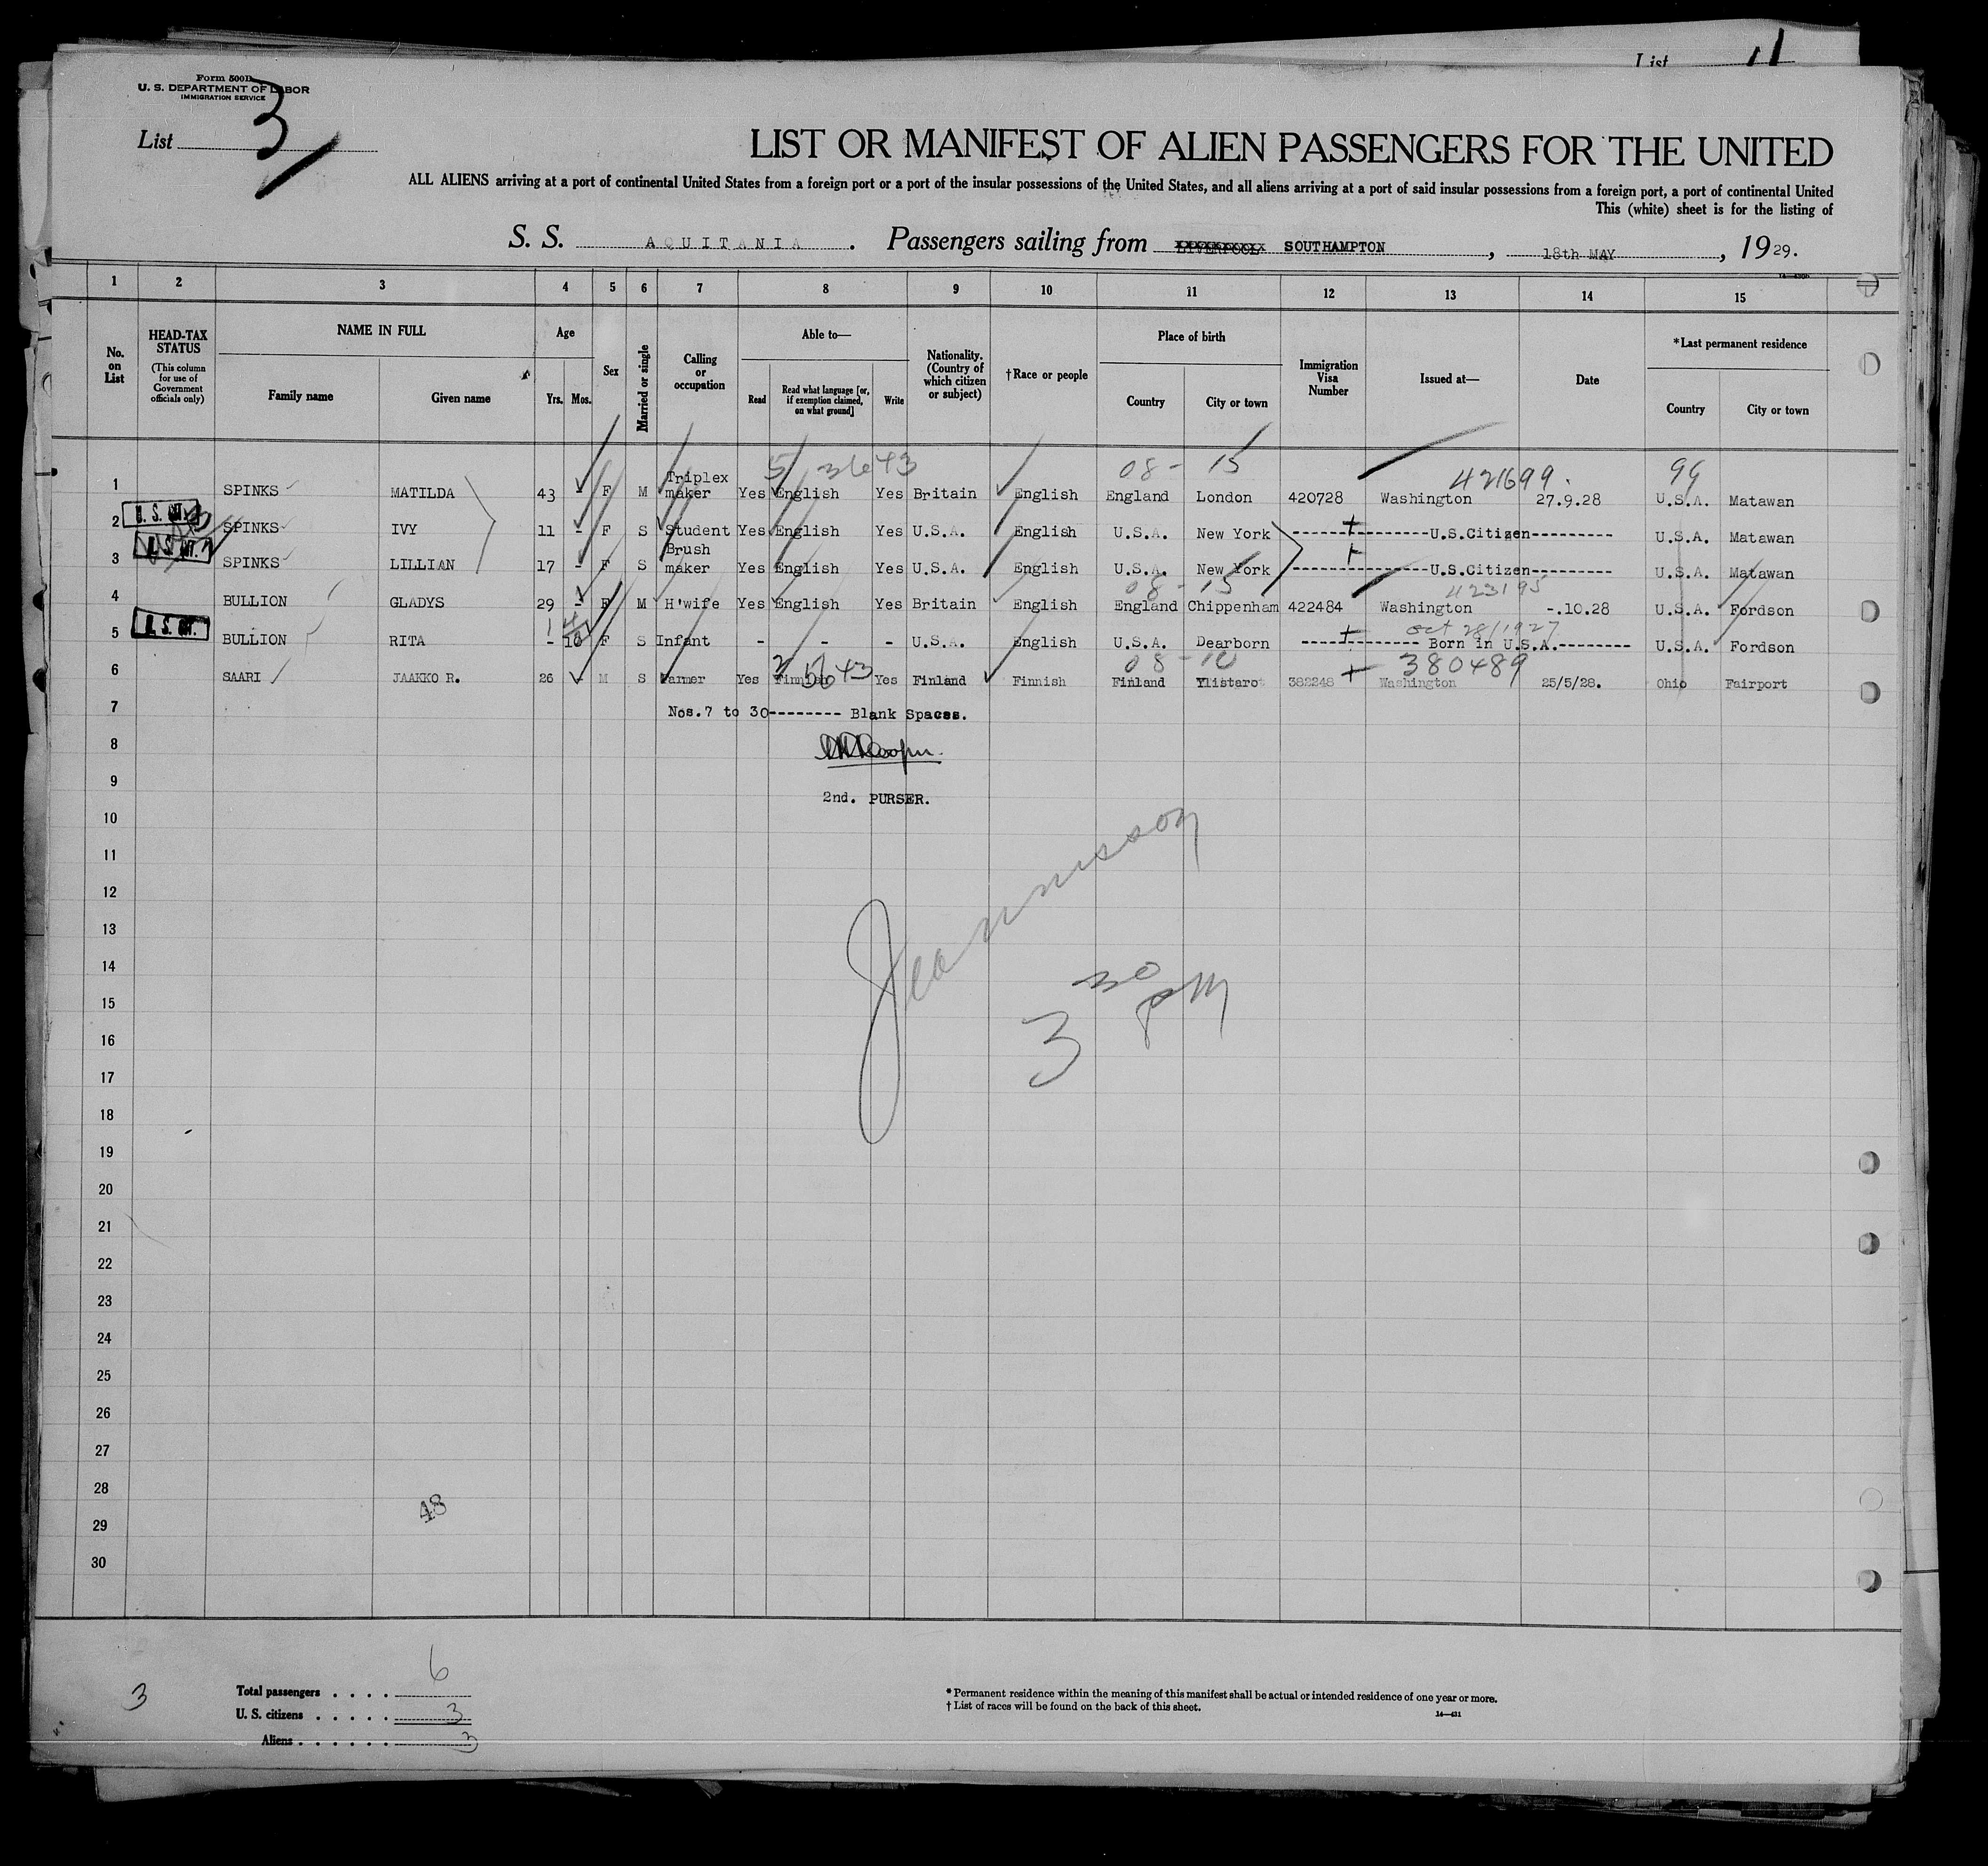 List 11
Form 500D
U. S. DEPARTMENT OF LABOR
IMMIGRATION SERVICE
List 3
LIST OR MANIFEST OF ALIEN PASSENGERS FOR THE UNITED
ALL ALIENS arriving at a port of continental United States from a foreign port or a port of the insular possessions of the United States, and all aliens arriving at a port of said insular possessions from a foreign port, a port of continental United
This (white) sheet is for the listing of
S. S. AQUITANIA. Passengers sailing from LIVERPOOL SOUTHAMPTON, 18th MAY, 1929.
1 2 3 4 5 6 7 8 9 10 11 12 13 14 15
No. on List
HEAD-TAX STATUS
(This column for use of Government officials only)
NAME IN FULL
Family name Given name
Age
Yrs. Mos.
Sex
Married or single
Calling or occupation
Able to—
Read
Read what language [or, if exemption claimed, on what ground]
Write
Nationality. (Country of which citizen or subject)
†Race or people
Place of birth
Country City or town
Immigration Visa Number
Issued at—
Date
*Last permanent residence
Country City or town
5 3643 08 - 15 421699. 99
1 SPINKS MATILDA 43 - F M Triplex maker Yes English Yes Britain English England London 420728 Washington 27.9.28 U.S.A. Matawan
2 SPINKS IVY 11 - F S Student Yes English Yes U.S.A. English U.S.A. New York -----------------U.S.Citizen--------- U.S.A. Matawan
3 SPINKS LILLIAN 17 - F S Brush maker Yes English Yes U.S.A. English U.S.A. New York -----------------U.S.Citizen--------- U.S.A. Matawan
08 - 15 423195
4 BULLION GLADYS 29 - F M H'wife Yes English Yes Britain English England Chippenham 422484 Washington -.10.28 U.S.A. Fordson
Oct 28/1927
5 BULLION RITA - 10 F S Infant - - - U.S.A. English U.S.A. Dearborn --------------- Born in U.S.A.--------- U.S.A. Fordson
08 - 10 380489
6 SAARI JAAKKO R. 26 M S Farmer Yes Finnish Yes Finland Finnish Finland Ylistaro 382248 Washington 25/5/28. Ohio Fairport
7 Nos.7 to 30-------- Blank Spaces.
8
9 2nd. PURSER.
10
11
12
13
14
15
16
17
18
19
20
21
22
23
24
25
26
27
28
29
30
3 30 pm
48
3
Total passengers . . . . 6
U. S. citizens . . . . . 3
Aliens . . . . . . 3
* Permanent residence within the meaning of this manifest shall be actual or intended residence of one year or more.
† List of races will be found on the back of this sheet.
14—431